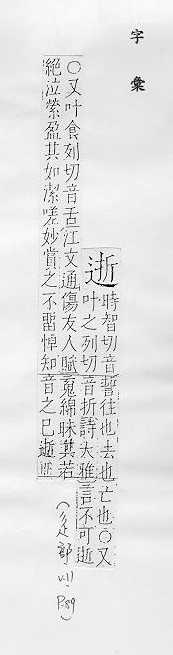 字彙
逝
時智切音誓往也去也亡也〇又
叶之列切音折詩大雅言不可逝
〇又叶食列切音舌江文通傷友人賦䰟綿昧其若
絕泣縈盈其如潔嗟妙賞之不畱悼知音之已逝
(辵部 P.89)